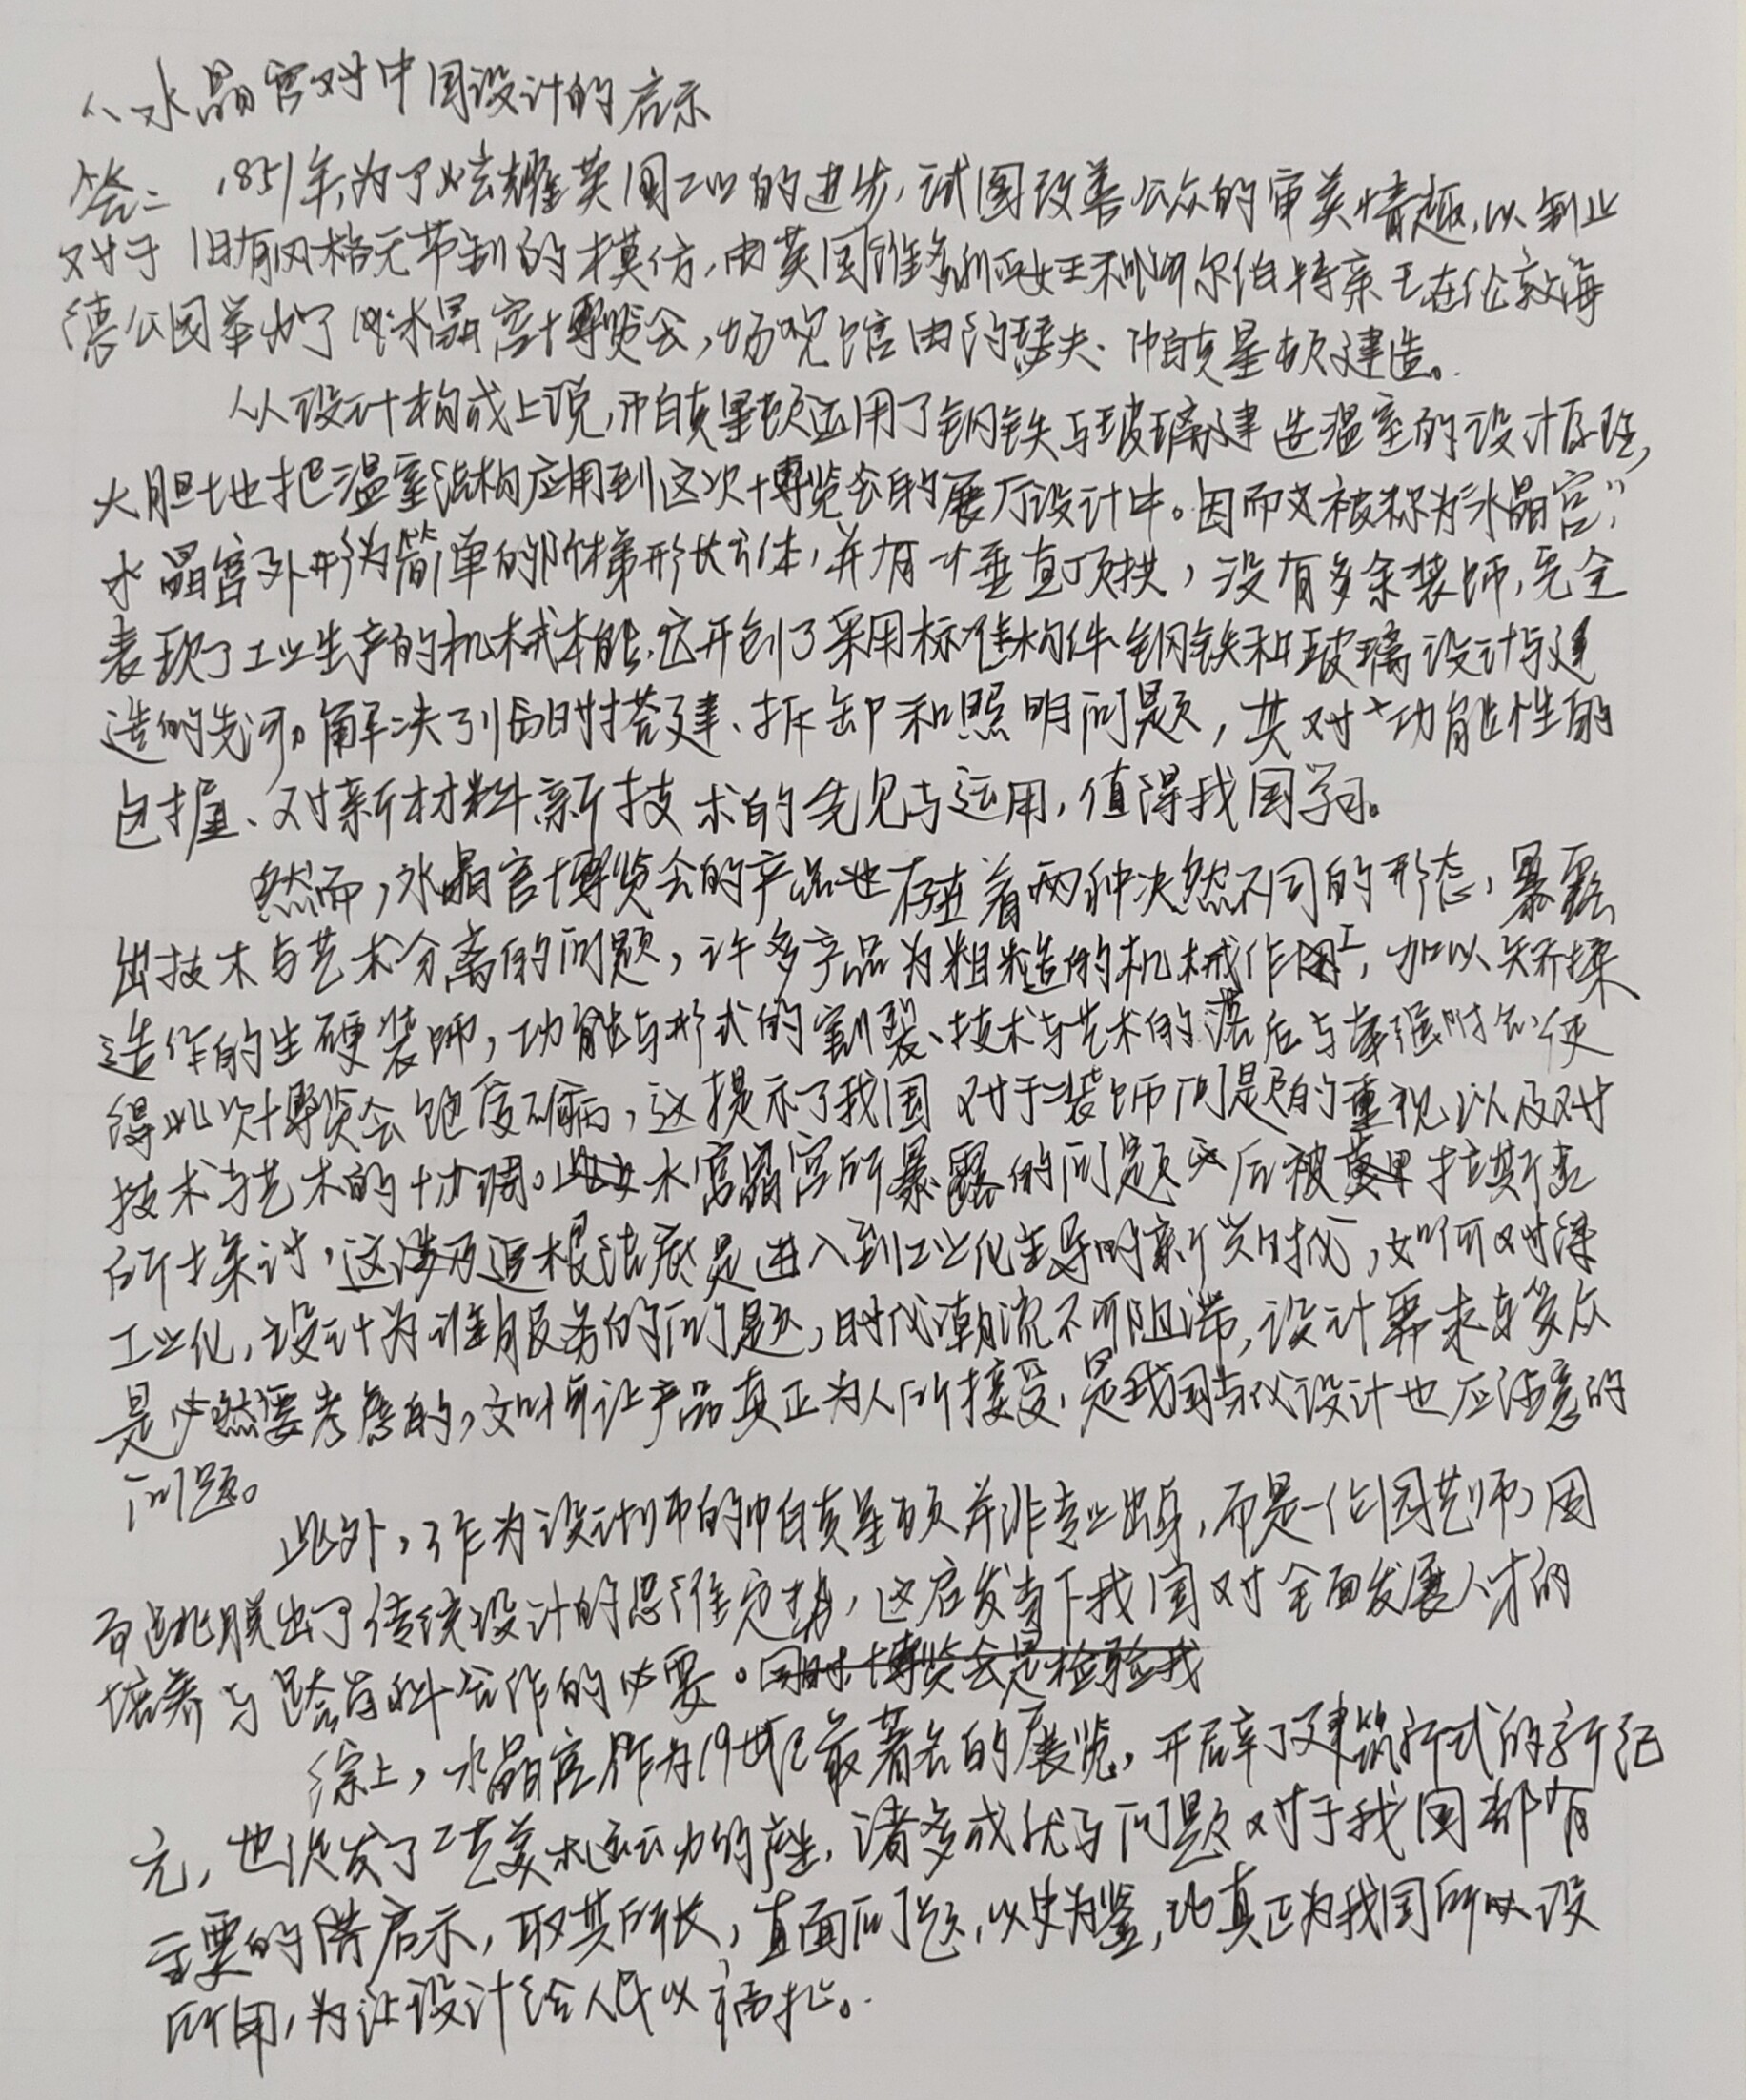 八、水晶宫对中国设计的启示
答: 1851年,为了炫耀英国工业的进步,试图改善公众的审美情趣,以制止
对于旧有风格无节制的模仿,由英国维多利亚女王和阿尔伯特亲王在伦敦海
德公园举办了水晶宫博览会,场馆由约瑟夫·帕克星顿建造。
从设计构成上说,帕克星顿运用了钢铁与玻璃建造温室的设计原理,
大胆地把温室结构应用到这次博览会的展厅设计中。因而又被称为"水晶宫",
水晶宫外形为简单的阶梯形长方体,并有一个垂直顶拱,没有多余装饰,完全
表现了工业生产的机械本能。它开创了采用标准构件、钢铁和玻璃设计与建
造的先河。解决了临时搭建、拆卸和照明问题,其对功能性的
包握、对新材料新技术的先见与运用,值得我国学习。
然而,水晶宫博览会的产品也存在着两种决然不同的形态,暴露
出技术与艺术分离的问题,许多产品为粗糙的机械作工,加以矫揉
造作的生硬装饰,功能与形式的割裂、技术与艺术的落后与牵强附会使
得此次博览会饱受诟病,这提示了我国对于装饰问题的重视以及对
技术与艺术的协调。水晶宫所暴露的问题后被拉斯金
所探讨,这追根结底是进入到工业化主导的新兴时代,如何对待
工业化,设计为谁服务的问题,时代潮流不可阻滞,设计需求与受众
是必然要考虑的,如何让产品真正为人所接受,是我国当代设计也应注意的
问题。
此外,作为设计师的帕克星顿并非专业出身,而是一位园艺师,因
而逃脱出了传统设计的思维定势,这启发当下我国对全面发展人才的
培养与跨学科合作的必要。同时博览会是检验我
综上,水晶宫作为19世纪最著名的展览,开辟了建筑形式的新纪
元,也促发了工艺美术运动的产生,诸多成就与问题对于我国都有
主要的启示,取其所长,直面问题,以史为鉴,真正为我国所以设
所用,为让设计给人民以福祉。